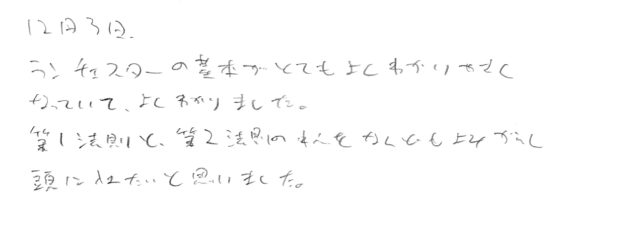 12月3日.
ランチェスターの基本がとてもよくわかりやすく
なっていて、よくわかりました。
第1法則と、第2法則の を なんども よみ し
頭に入れたいと思いました。